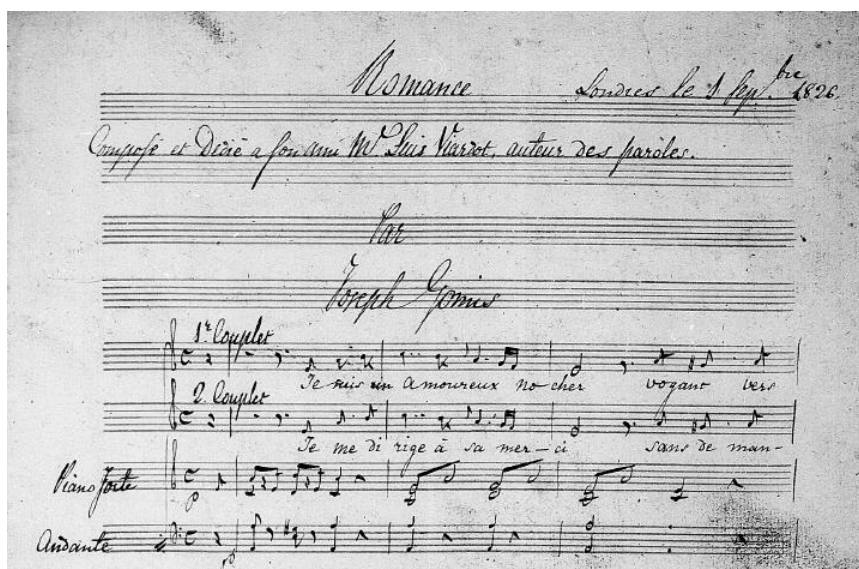 Romance
Londres le 1 Sep.bre 1826
Composé et Dédié a son ami Mr Luis Viardot, auteur des paroles.
Par
Joseph Gomis
1r. Couplet
Je suis un amoureux no cher vogant vers
2. Couplet
Je me di rige à sa mer-ci sans de man-
Piano forte
p
Andante
p